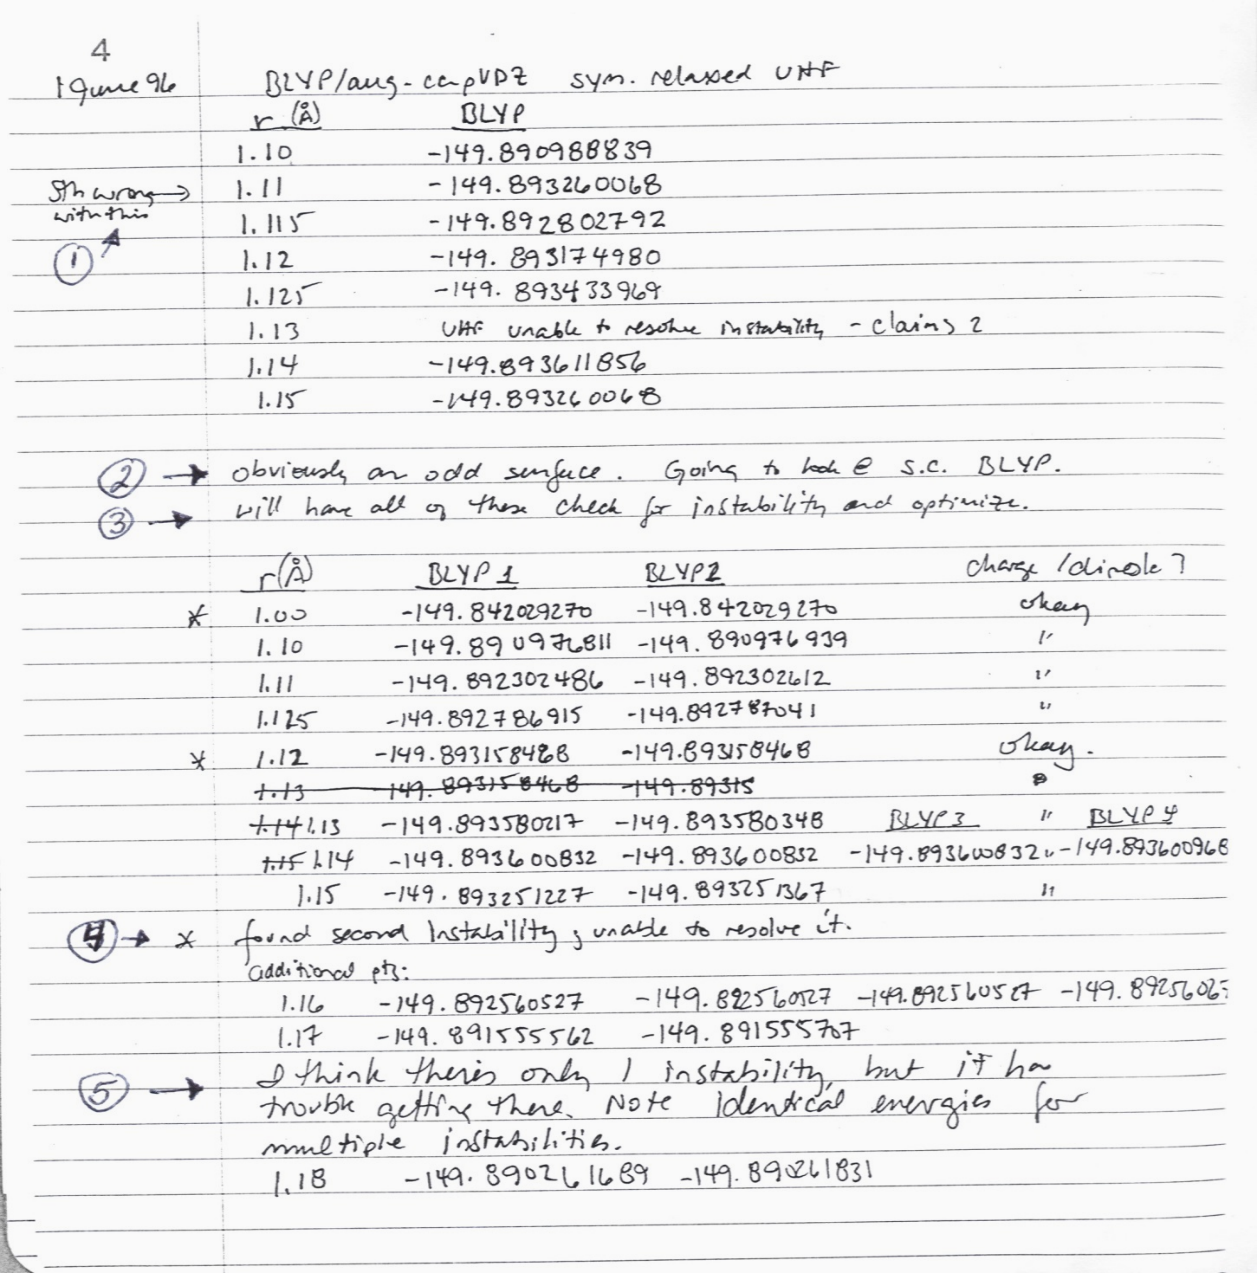 4
19 June 96 BLYP/aug-ccpVDZ sym. relaxed UHF
r (Å) BLYP
1.10 -149.890988839
Sth wrong → 1.11 -149.893260068
with this
1.115 -149.892802792
1 1.12 -149.893174980
1.125 -149.893433969
1.13 UHF unable to resolve instability - claims 2
1.14 -149.893611856
1.15 -149.893260068
2 → obviously an odd surface. Going to look @ S.C. BLYP.
3 → will have all of these check for instability and optimize.
r(Å) BLYP1 BLYP2 charge/dipole?
* 1.00 -149.842029270 -149.842029270 okay
1.10 -149.890976811 -149.890976939 "
1.11 -149.892302486 -149.892302612 "
1.125 -149.892786915 -149.892787041 "
* 1.12 -149.893158468 -149.893158468 okay.
1.13 -149.893158468 -149.89315
1.14 1.13 -149.893580217 -149.893580348 BLYP3 " BLYP4
1.15 1.14 -149.893600832 -149.893600832 -149.893600832 -149.893600968
1.15 -149.893251227 -149.893251367 "
4 → * found second instability; unable to resolve it.
additional pts:
1.16 -149.892560527 -149.892560527 -149.892560527 -149.8925606
1.17 -149.891555562 -149.891555707
5 → I think there's only 1 instability, but it has
trouble getting there. Note identical energies for
multiple instabilities.
1.18 -149.890261689 -149.890261831